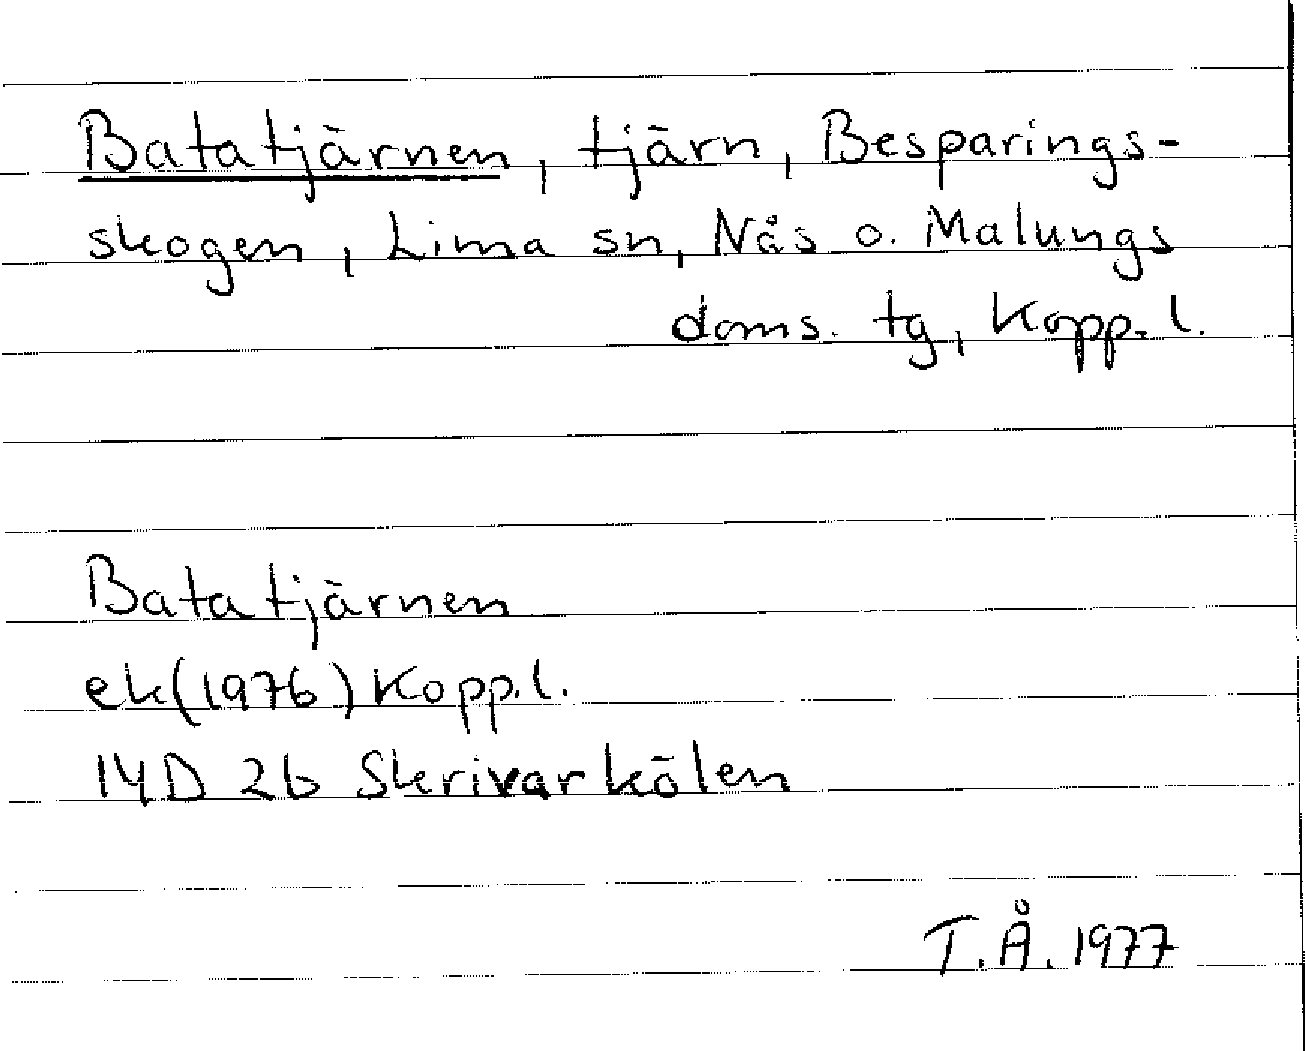 Batatjärnen, tjärn, Besparings-
skogen, Lima sn, Nås o. Malungs
doms. tg, Kopp. l.
Batatjärnen
ek(1976) Kopp. l.
14D 2b Skrivarkölen
T.Å. 1977